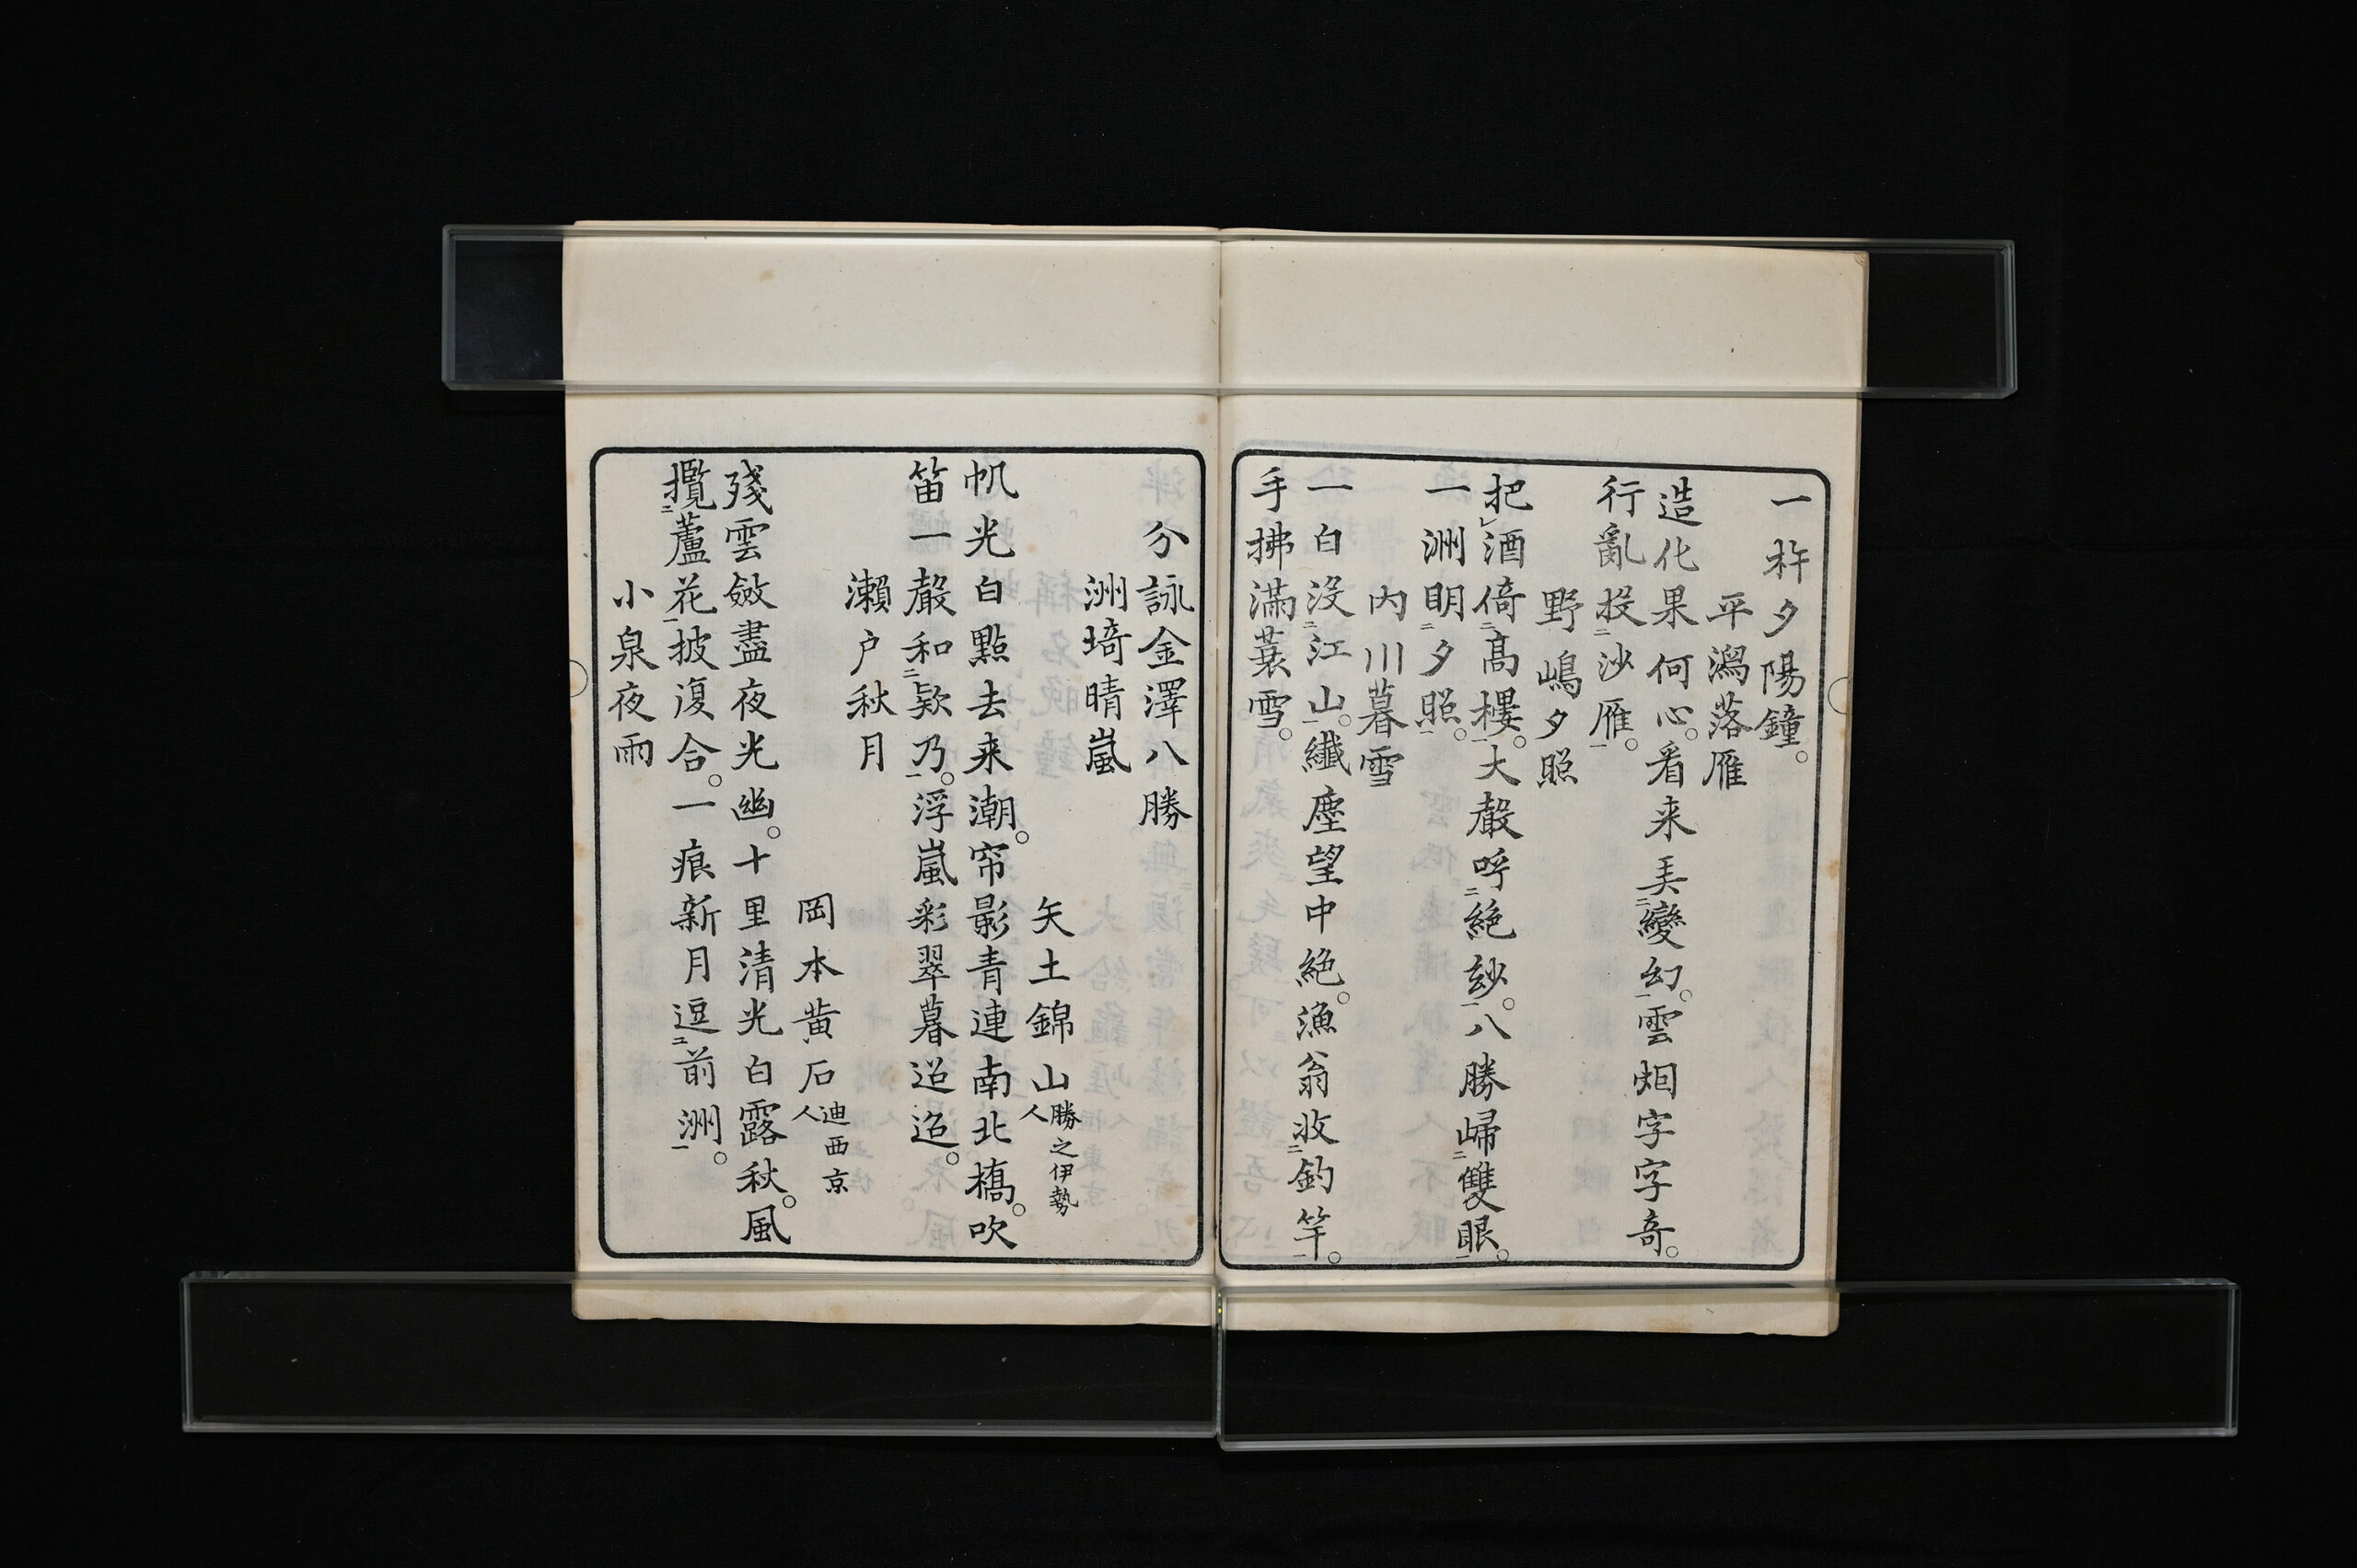 一杵夕陽鐘。
平瀉落雁
造化果何心。看来美變幻。雲烟字字奇。
行亂投沙雁。
野嶋夕照
把酒倚髙樓。大聲呼絶玅。八勝歸雙眼。
一洲明夕照。
内川暮雪
一白沒江山。纎塵望中絶。漁翁收釣竿。
手拂滿蓑雪。
分詠金澤八勝
洲埼晴嵐
矢土錦山 勝之伊勢人
帆光白點去来潮。帘影青連南北橋。吹
笛一聲和欵乃。浮嵐彩翠暮迢迢。
瀨戶秋月
岡本黄石 迪西京人
殘雲斂盡夜光幽。十里清光白露秋。風
攬蘆花披復合。一痕新月逗前洲。
小泉夜雨